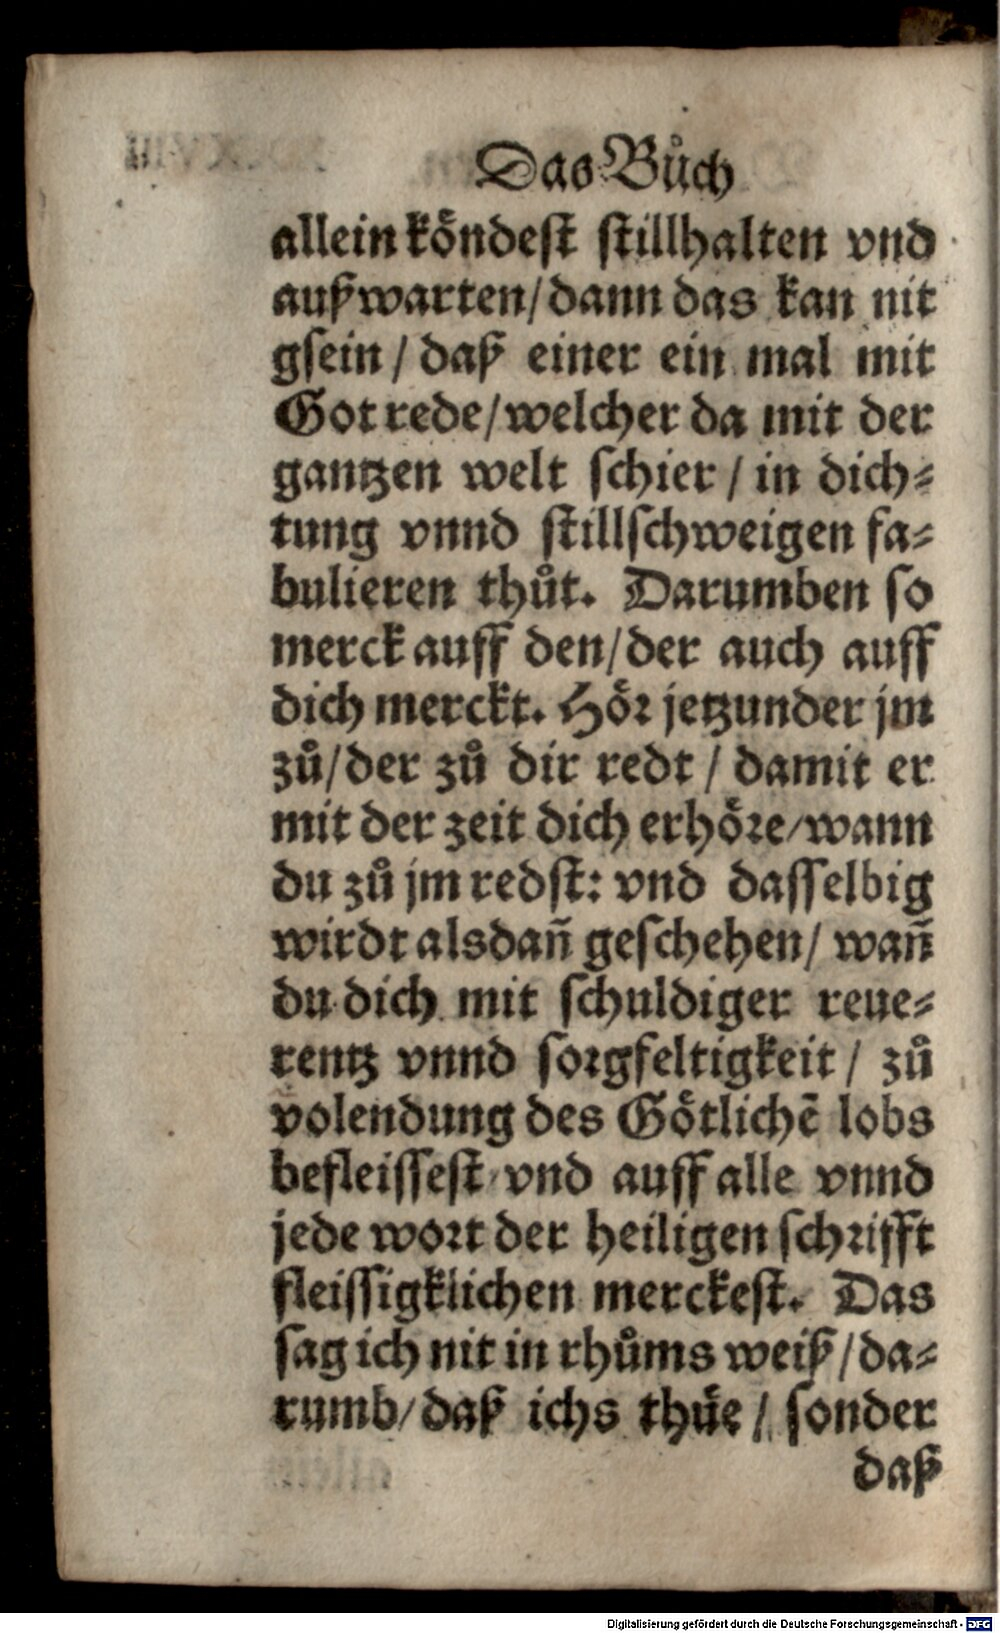 Das Bůch
allein koͤndest stillhalten vnd
außwarten/dann das kan nit
gsein/ daß einer ein mal mit
Got rede/welcher da mit der
gantzen welt schier/ in dich⸗
tung vnnd stillschweigen fa⸗
bulieren thůt. Darumben so
merck auff den/der auch auff
dich merckt. Hoͤr jetzunder jm
zů/der zů dir redt/ damit er
mit der zeit dich erhoͤre/wann
du zů jm redst: vnd dasselbig
wirdt alsdañ geschehen/ wañ
du dich mit schuldiger reue⸗
rentz vnnd sorgfeltigkeit/ zů
volendung des Goͤtlichẽ lobs
befleissest vnd auff alle vnnd
jede wort der heiligen schrifft
fleissigklichen merckest. Das
sag ich nit in rhůms weiß/da⸗
rumb/daß ichs thuͤe/ sonder
daß
Digitalisierung gefördert durch die Deutsche Forschungsgemeinschaft - DFG